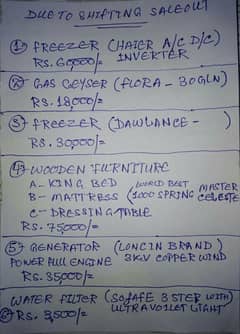 DUE TO SHIFTING SALEOUT
1) FREEZER (HAIER A/C D/C)
INVERTER
RS. 60,000/=
2) GAS GEYSER (FLORA - 30GLN)
RS. 18,000/=
3) FREEZER (DAWLANCE - )
RS. 30,000/=
4) WOODEN FURNITURE
A- KING BED
B- MATTRESS (WORLD BEST 1000 SPRING MASTER CELESTE
C- DRESSING TABLE
RS. 75000/=
5) GENERATOR (LONCIN BRAND)
POWER FULL ENGINE 3KGV COPPER WIND
RS. 35000/=
WATER FILTER (SOFAFE 3 STEP WITH)
6) RS. 3,500/= ULTRAVOILET LIGHT